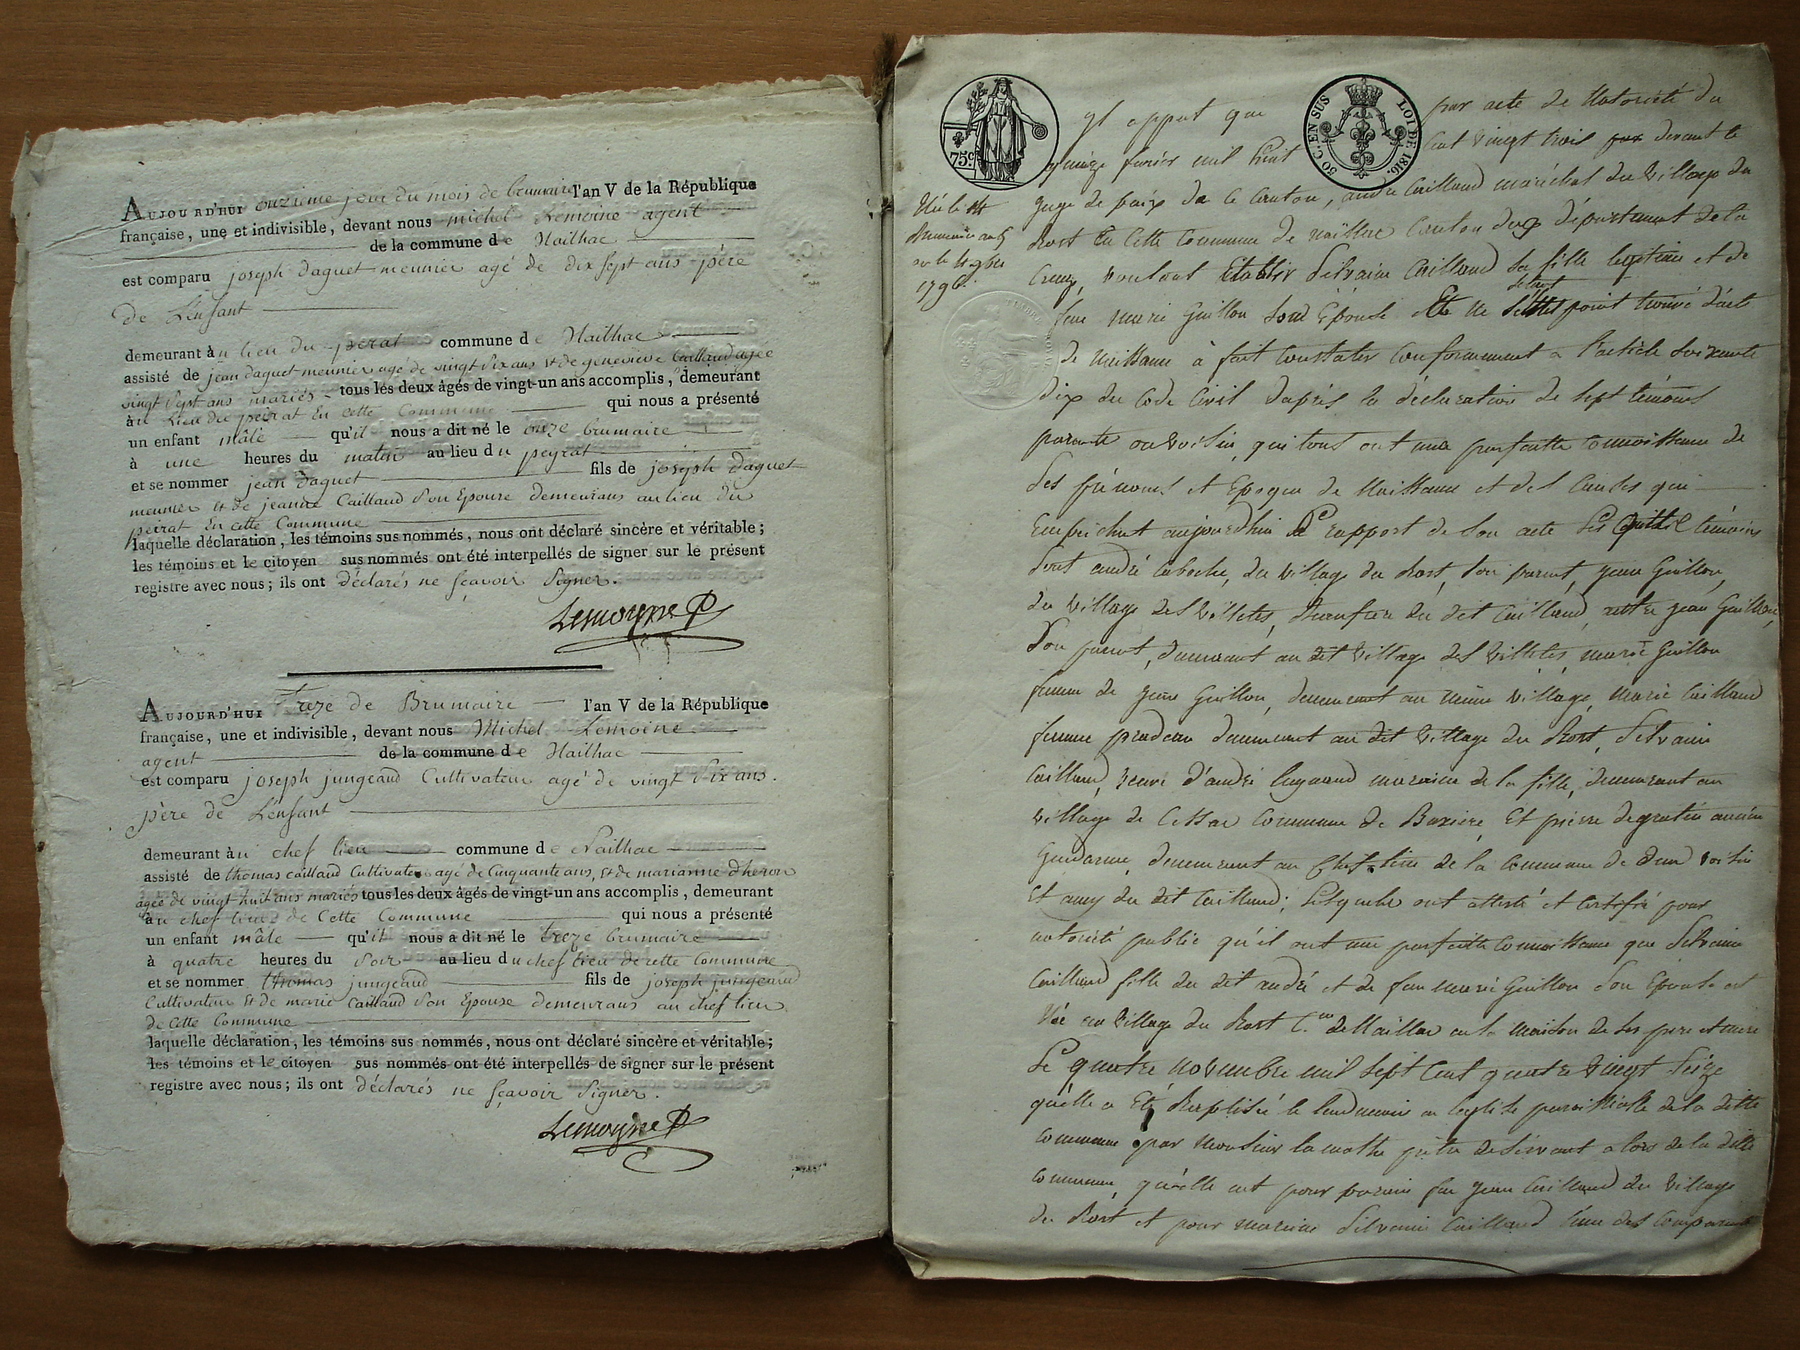 AUJOURD'HUI onzieme jour du mois de brumaire l'an V de la République
française, une et indivisible, devant nous michel Lemoine agent
de la commune de Nailhac
est comparu joseph daguet meunier agé de dix sept ans père
de L'enfant
demeurant àu lieu du perat commune de Nailhac
assisté de jean daguet meunier agé de vingt six ans et de genevieve Caillaud agée
vingt sept ans mariés tous les deux âgés de vingt-un ans accomplis, demeurant
àu Lieu du peirat En cette Commune qui nous a présenté
un enfant mâle qu'il nous a dit né le onze brumaire
à une heures du matin au lieu du peyrat
et se nommer jean daguet fils de joseph daguet
meunier et de jeanne Caillaud Son Epouse demeurans au lieu du
peirat En cette Commune
laquelle déclaration, les témoins sus nommés, nous ont déclaré sincère et véritable;
les témoins et le citoyen sus nommés ont été interpellés de signer sur le présent
registre avec nous; ils ont déclarés ne sçavoir Signer.
Lemoyne
AUJOURD'HUI Treze de Brumaire l'an V de la République
française, une et indivisible, devant nous Michel Lemoine
agent de la commune de Nailhac
est comparu joseph jungeaud Cultivateur agé de vingt Six ans.
père de L'enfant
demeurant àu chef lieu commune de Nailhac
assisté de thomas caillaud Cultivateur agé de Cinquante ans, et de marianne dheron
agée de vingt huit ans mariés tous les deux âgés de vingt-un ans accomplis, demeurant
àu chef lieu de Cette Commune qui nous a présenté
un enfant mâle qu'il nous a dit né le treze brumaire
à quatre heures du Soir au lieu du chef lieu de cette Commune
et se nommer thomas jungeaud fils de joseph jungeaud
Cultivateur et de marie Caillaud Son Epouse demeurans au chef lieu
de Cette Commune
laquelle déclaration, les témoins sus nommés, nous ont déclaré sincère et véritable;
les témoins et le citoyen sus nommés ont été interpellés de signer sur le présent
registre avec nous; ils ont déclarés ne sçavoir Signer.
Lemoyne
75c
50 C. EN SUS LOI DE 1816.
brumaire an 5
1796
il appert que par acte de Notoriété du
quinze mil huit cent vingt trois devant le
juge de paix de ce Canton, andré Caillaud maréchal du Village du
Rost En Cette Commune de Canton département de la
Creuze, voulant Etablir Silvaine Caillaud sa fille et de
feue marie Guillon Son Epouse Et ne point trouvé d'acte
de naissance à fait Constater Conformement a l'article Soixante
dix du Code Civil d'après la déclaration de Sept témoins
parents ou Voisin, qui tous ont une parfaite Connoissance de
Ses prénoms et Epoque de Naissance et des Causes qui
Empêchent aujourd'hui Le rapport de Son acte témoins
Sont andré du Village du Rost, Son parent, jean Guillon,
du Village des Villetes, Beaufrere du dit Caillaud, autre jean Guillon,
Son parent, demeurant au dit Village des Villetes, marie Guillon
femme de jean Guillon, demeurant au même Village, Marie Caillaud
femme pradeau demeurant au dit Village du Rost, Silvaine
Caillaud, veuve d'andré maraine de la fille, demeurant au
Village de Commune de Et pierre ancien
Gendarme, demeurant au Chef-lieu de la Commune de dun Voisin
Et amy du dit Caillaud; Lesquels ont attesté et Certifié pour
notoriété public qu'il ont une parfaite Connoissance que Silvaine
Caillaud fille du dit andré et de feue marie Guillon Son Epouse est
Née au Village du Rost C.ne de Naillac en la Maison de Ses pere et mere
Le quatre novembre mil Sept Cent quatre Vingt Seize
quelle a Eté Baptisée le lendemain en leglise paroissialle de la ditte
Commune par Monsieur lamothe prêtre deservant alors de la ditte
Commune, quelle eut pour parain feu jean Caillaud du Village
du Rost et pour maraine Silvaine Caillaud l'une des Comparants